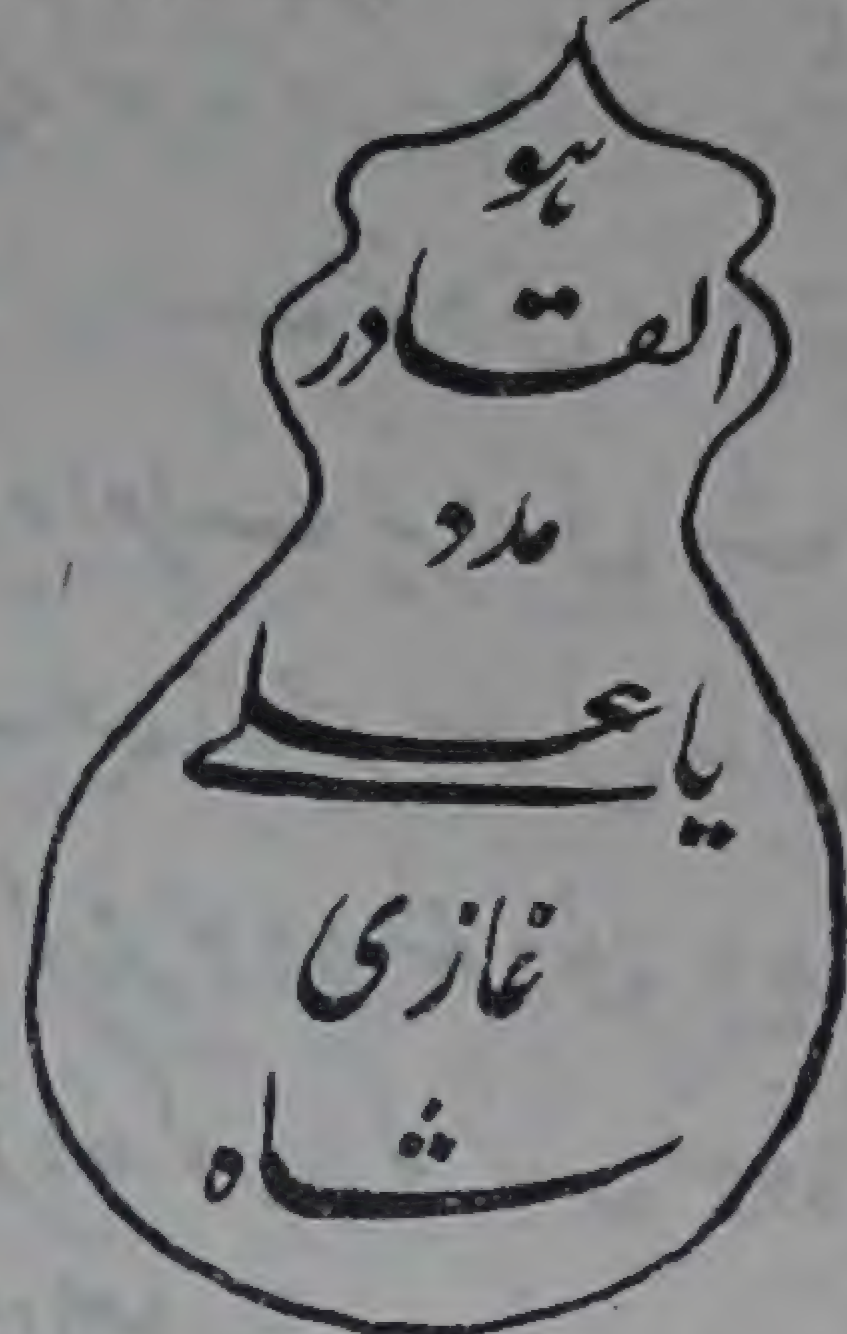 ہو
القادر
مدد
یا علی
غازی
شاہ